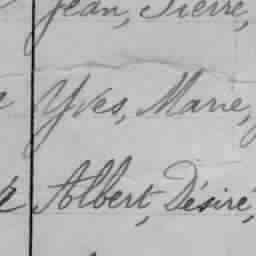 Jean, Pierre,
Yves, Marie,
Albert, Désiré,